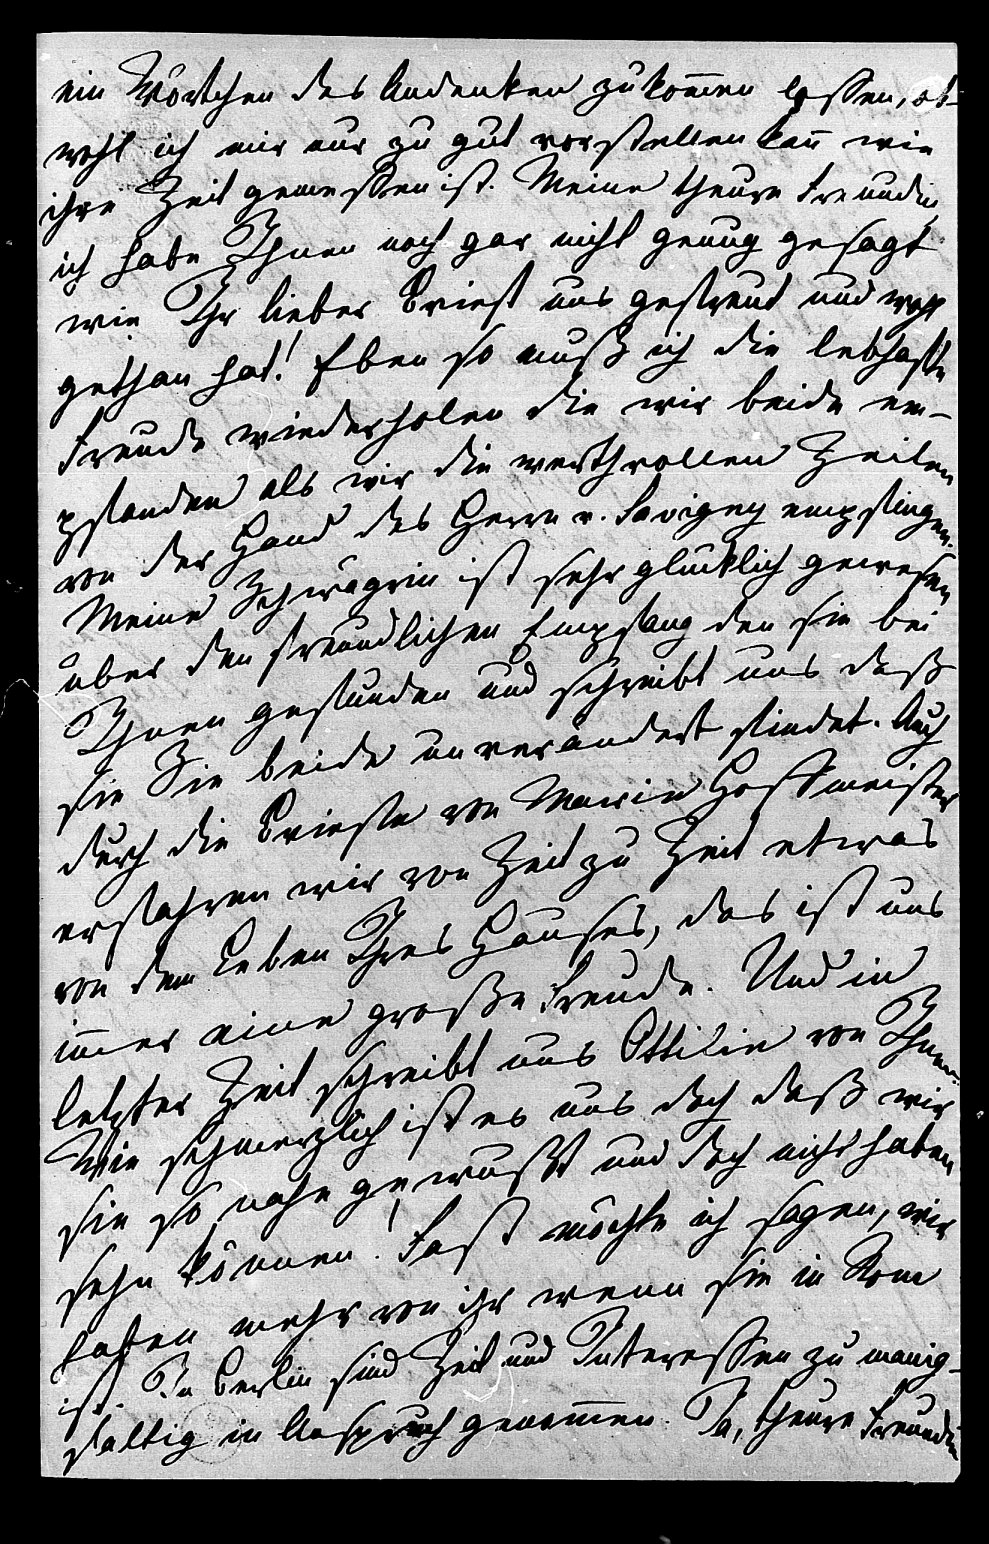 ein Wörtchen des Andenken zukom̄en lassen, ob-
wohl ich mir nur zu gut vorstellen kan̄ wie
ihre Zeit gemessen ist. Meine theure Freundin
ich habe Ihnen noch gar nicht genug gesagt
wie Ihr lieber Brief uns gefreut und wohl
gethan hat! Eben so muß ich die lebhafte
Freude wiederholen die wir beide em-
pfanden als wir die werthvollen Zeilen
von der Hand des Herrn v. Savigny empfingen.
Meine Schwägrin ist sehr glücklich gewesen
über den freundlichen Empfang den sie bei
Ihnen gefunden und schreibt uns daß
sie Sie beide unverändert findet. Auch
durch die Briefe von Marie Hoffmeister
erfahren wir von Zeit zu Zeit etwas
von dem Leben Ihres Hauses, das ist uns
im̄er eine große Freude. Und in
letzter Zeit schreibt uns Ottilie von Ihnen.
Wie schmerzlich ist es uns doch daß wir
sie so nahe gewußt und doch nicht haben
sehn können! Fast möchte ich sagen, wir
haben mehr von ihr wenn sie in Rom
ist. In Berlin sind Zeit und Interessen zu manig-
faltig in Anspruch genom̄en. Ja, theure Freundin